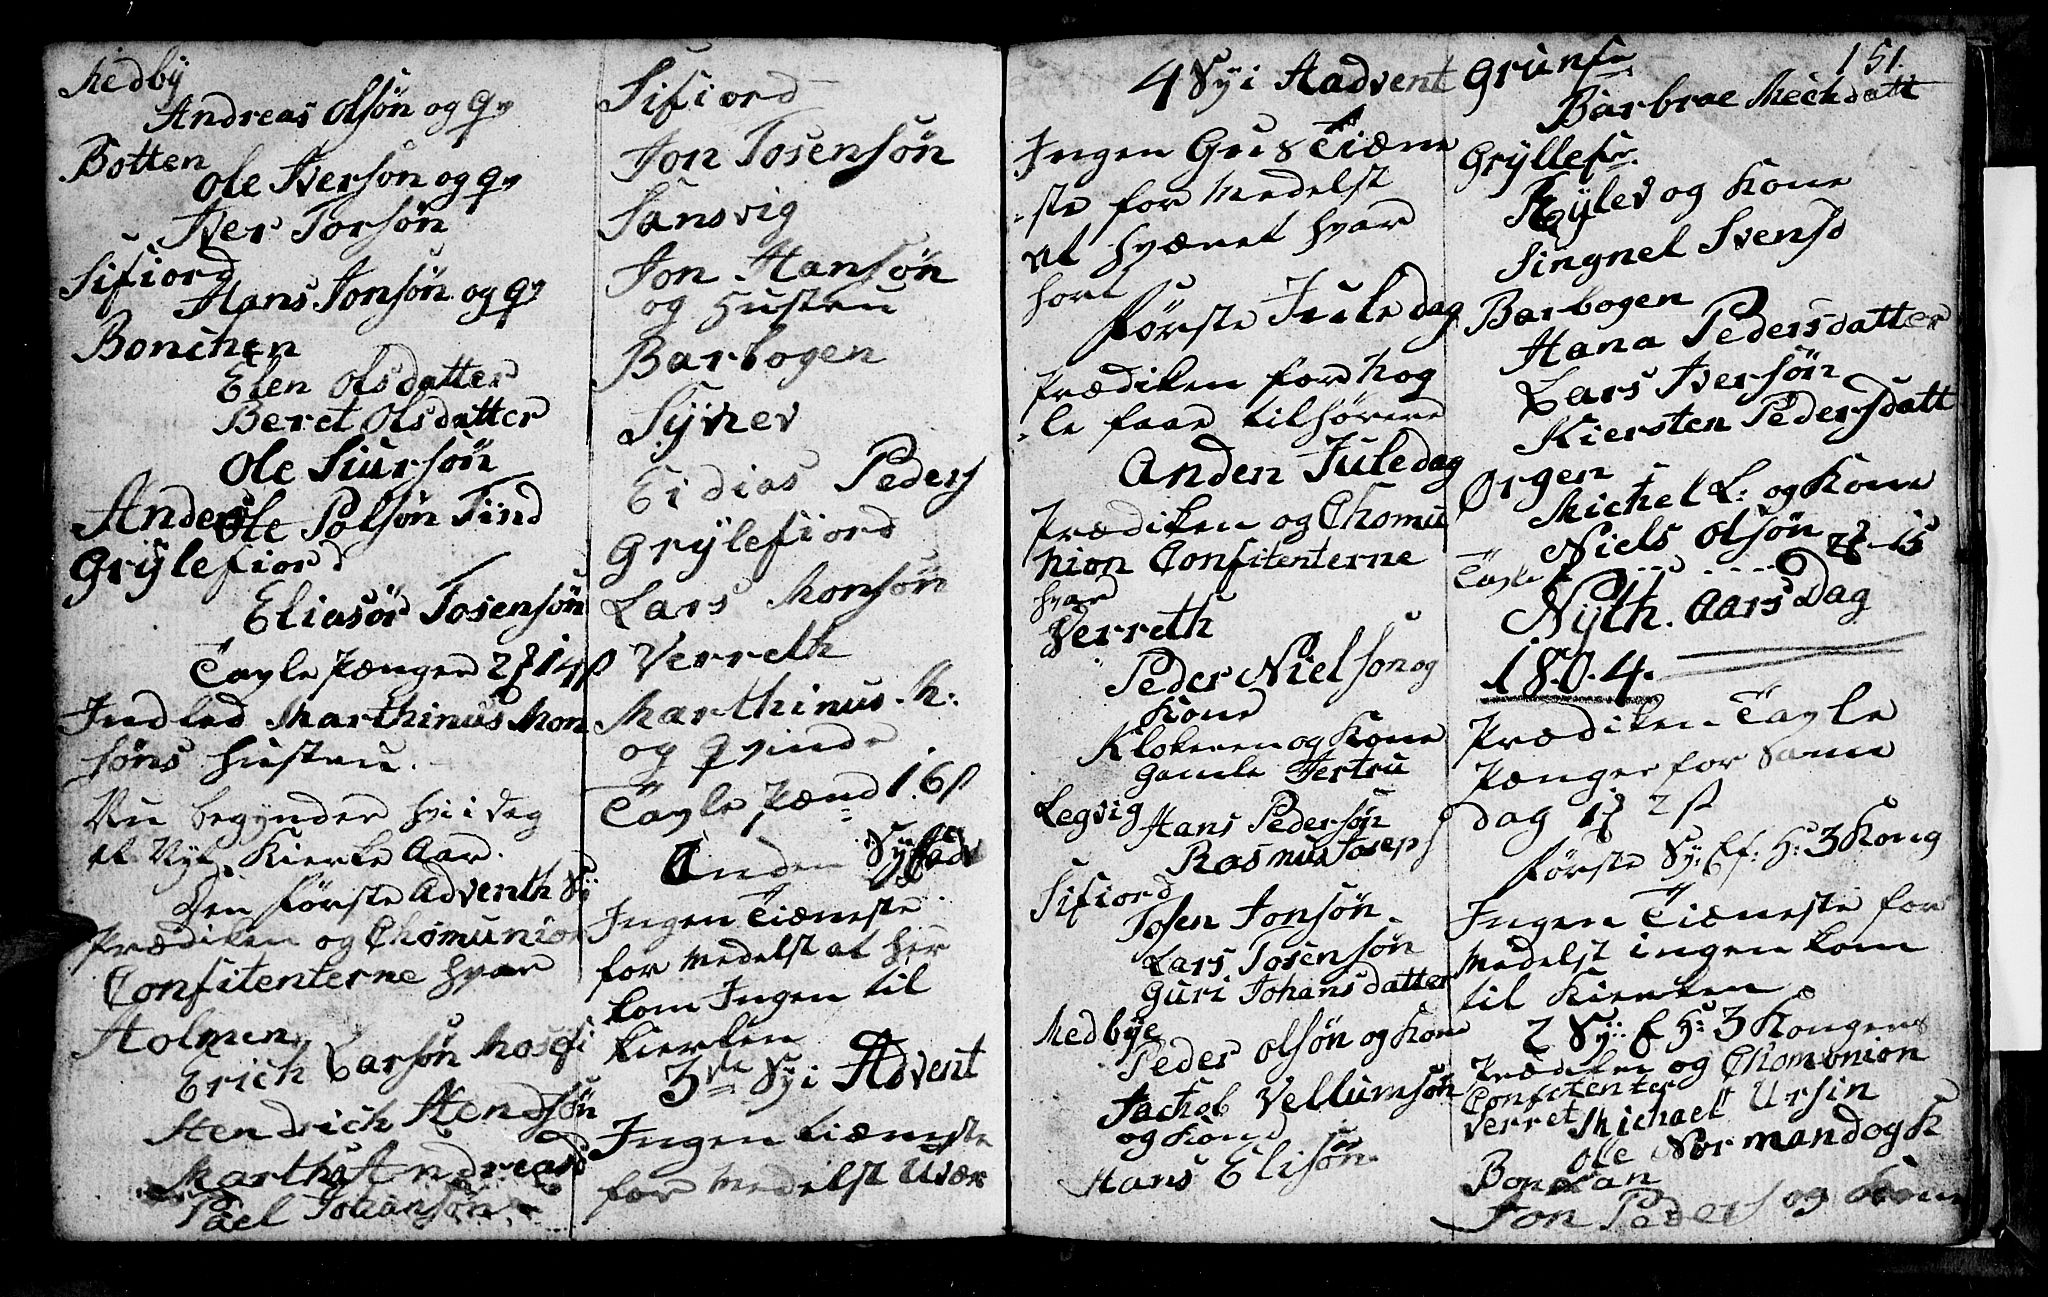 Medby
Andreas Olsøn og qv
Botten
Ole Iversøn og qv
Iver Torsøn
Sifiord
Hans Jonsøn og qv
Bonichen
Elen Olsdatter
Beret Olsdatter
Ole Siursøn
Anders
Ole Polsøn Tind
Grylefiord
Eliasør Tosensøn
Tavle Pænger 2 14 ß
Indled Marthinus Mon
søns Hustru.
Nu begynder hvi i dag
et Nyt Kierke Aar.
Den første Adventh Sy
Prædiken og Chomunion
Confitenterne hvar
Holmen
Erich Larsøn
Hendrich Hendsøn
Martha Andreasd
Pael Johansøn
Sifiord
Jon Tosensøn
Sansvig
Jon Hansøn
og Hustru
Barbogen
Synev
Erdias Peders
Grylefiord
Lars Monsøn
Verreth
Marthinus. M:
og qvinde
Tavle Pæng 1. 6 ß
Anden Sy i Adv
Ingen Tiæneste
for medelst at her
kom Ingen til
kierken
3de Sy i Advent
Ingen tiæneste
for medelst Uvær
4 Sy i Aadvent
Ingen Gus Tiæne
ste for medelst
et hvænet hvar
hort
Første Juledag
Prædiken for nog
le faae tilhørere
Anden Juledag
Prædiken og Chomu
nion Confitenterne
hvar
Verreth
Peder Nielson og
Kone
Klokeren og Kone
Gamle Jertru
Legvig
Hans Pedersøn
Rasmus Joseph
Sifiord
Tosen Jonsøn.
Lars Tosensøn
Guri Johansdatter
Medbye
Peder Olsøn og Kone
Jachob Vellumsøn
og Kone
Hans Elisøn
151.
Grunfr
Barbrae Mechdatt
Gryllefr.
Rylev og Kone
Singnel Svensd
Barbogen
Hana Pedersdatter
Lars Iversøn
Kiersten Pedersdatt
Ørgen
Michel L: og Kone
Niels Olsøn
Tavle 2 - 15
Nyth. Aars Dag
1804.
Prædiken Tavle
Pænger for Samme
dag 1 2 ß
Første Sy: Ef: H: 3 Kong
Ingen Tiæneste for
medelst ingen kom
til Kierken
2 Sy: E H: 3 Kongers
Prædiken og Chomonion
Confitenter
Verret Michael Ursin
Ole Normand og K
Bon
Jon Peders og Kone